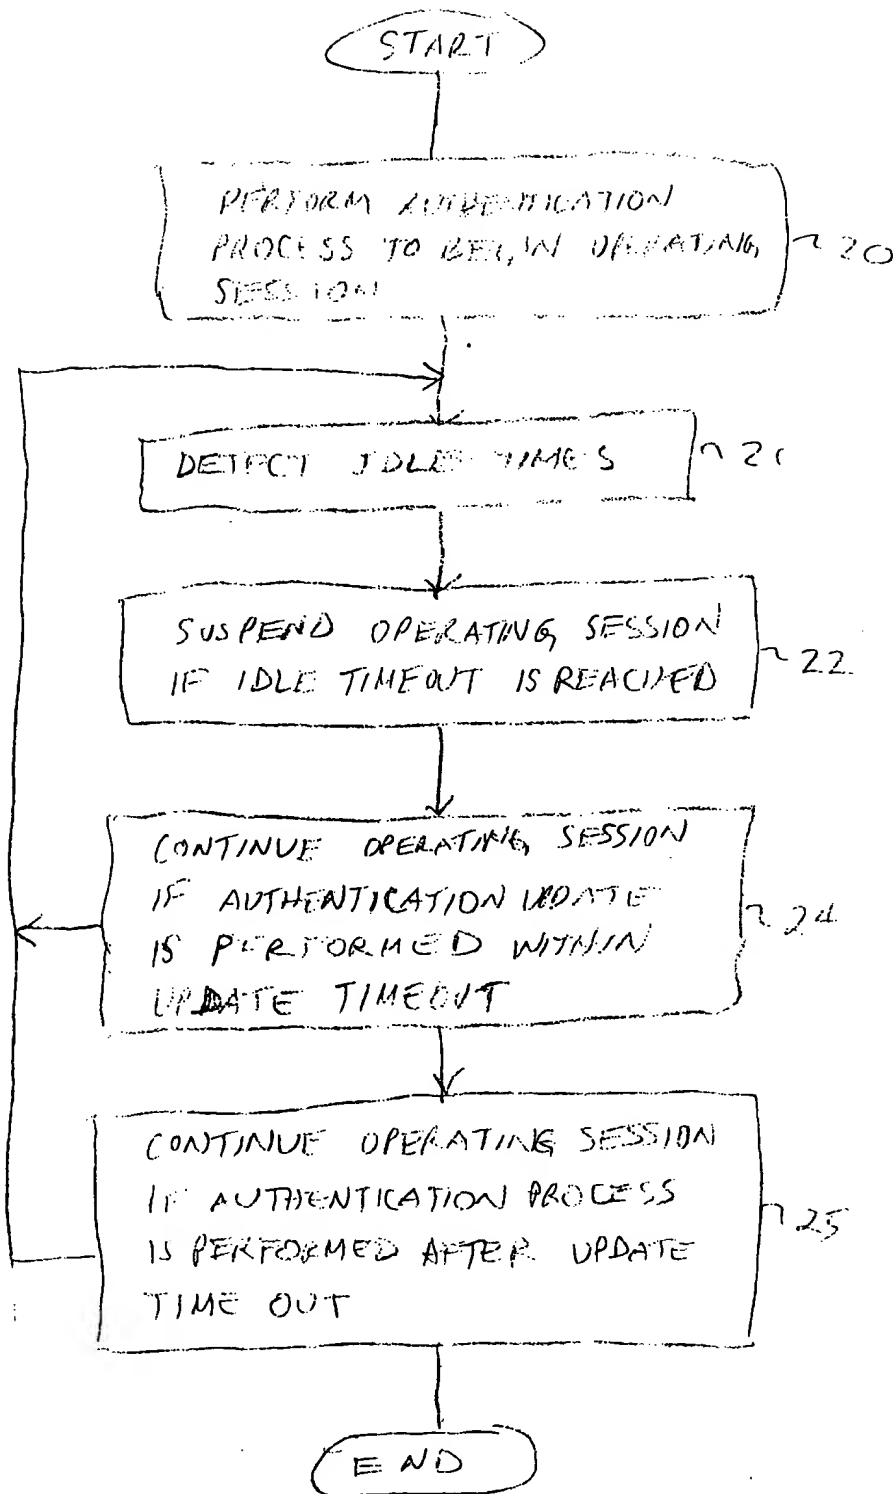 START
PERFORM AUTHENTICATION
PROCESS TO BEGIN OPERATING
SESSION
20
DETECT IDLE TIMES
21
SUSPEND OPERATING SESSION
IF IDLE TIMEOUT IS REACHED
22
CONTINUE OPERATING SESSION
IF AUTHENTICATION UPDATE
IS PERFORMED WITHIN
UPDATE TIMEOUT
24
CONTINUE OPERATING SESSION
IF AUTHENTICATION PROCESS
IS PERFORMED AFTER UPDATE
TIME OUT
25
END